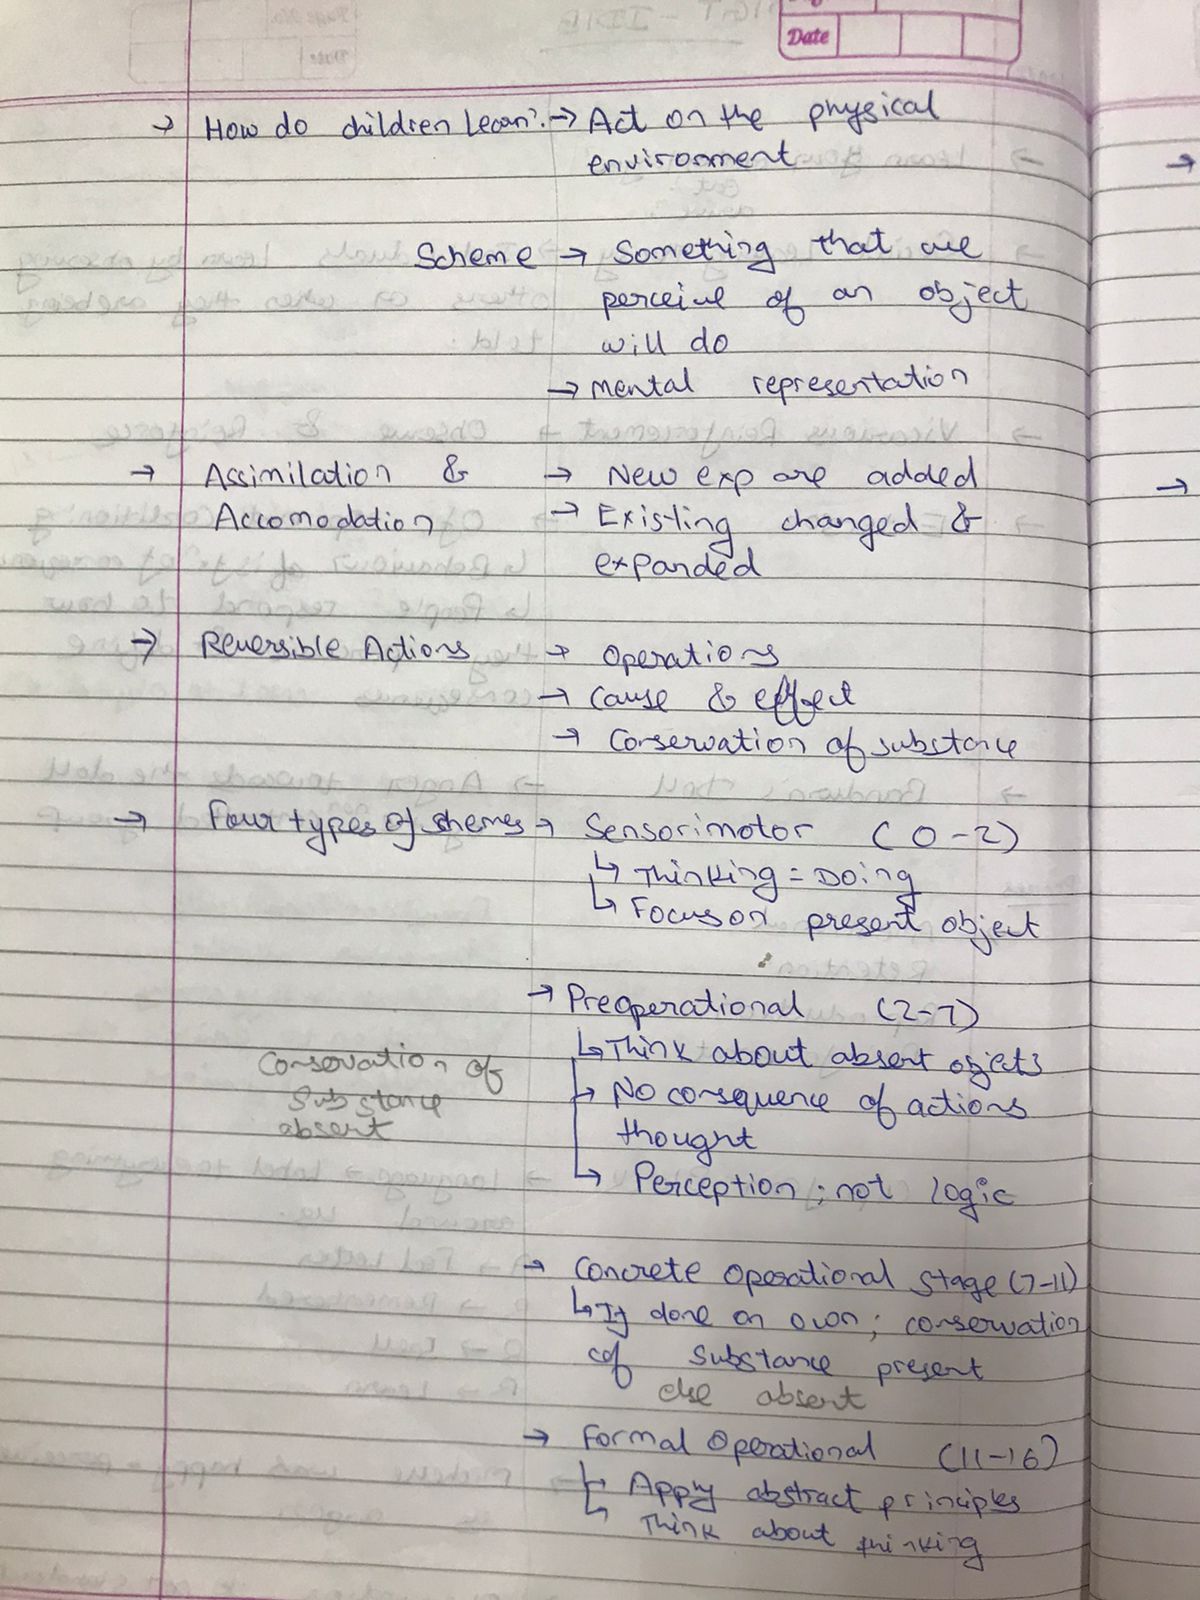 Date
→ How do children learn? → Act on the physical
environment
Scheme → Something that we
perceive of an object
will do
→ mental representation
→ Assimilation & → New exp are added
Accomodation → Existing changed &
expanded
→ Reversible Actions → Operations
→ cause & effect
→ Conservation of substance
→ Four types of shemes → Sensorimotor (0-2)
↳ Thinking = Doing
↳ Focus on present object
→ Preoperational (2-7)
↳ Think about absent objects
Conservation of
substance
absent
↳ No consequence of actions
thought
↳ Perception; not logic
→ Concrete operational stage (7-11)
↳ If done on own; conservation
of substance present
else absent
→ Formal Operational (11-16)
↳ Apply abstract principles
↳ Think about thinking